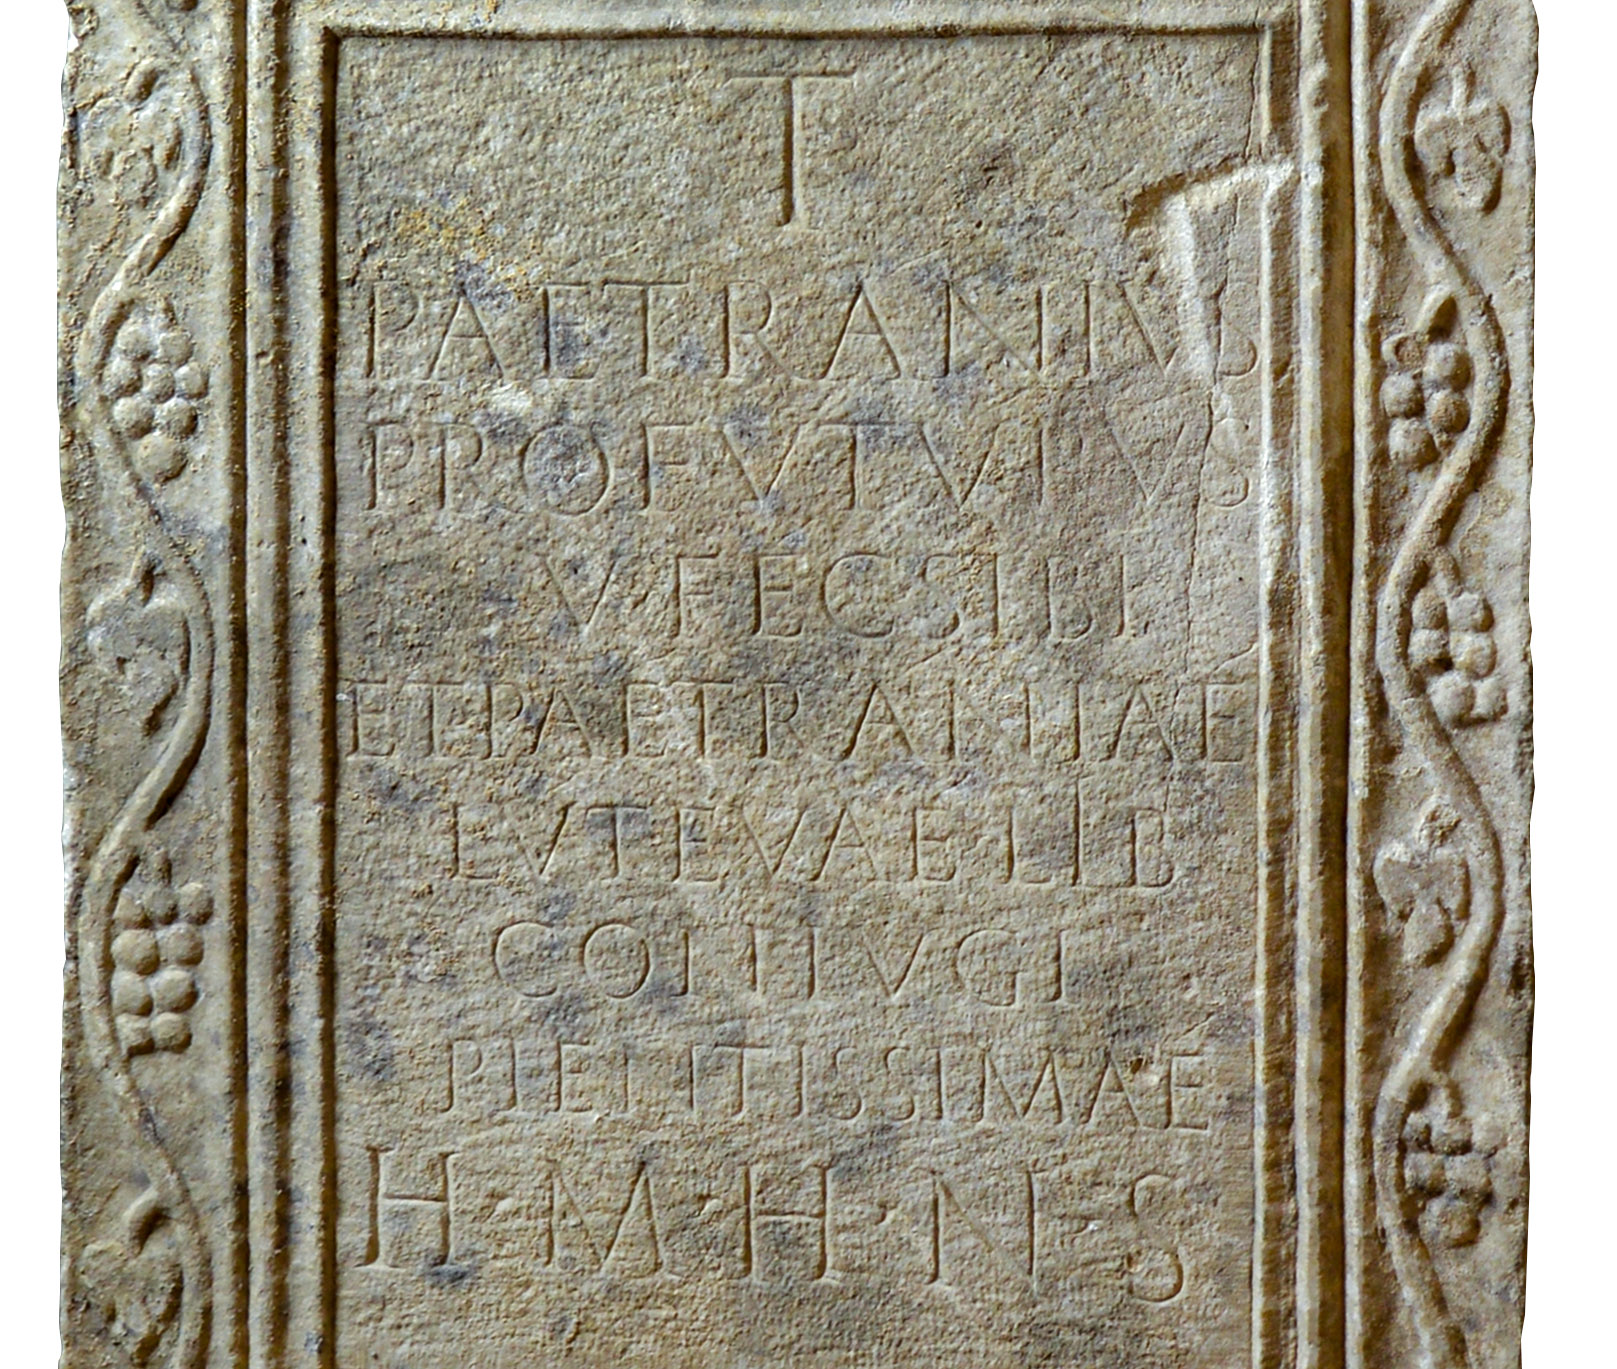 T
PAETRANIVS
PROFVTVRVS
V FEC SIBI
ET PAETRANIAE
LVTEVAE LIB
CONIVGI
PIENTISSIMAE
H·M·H·N·S